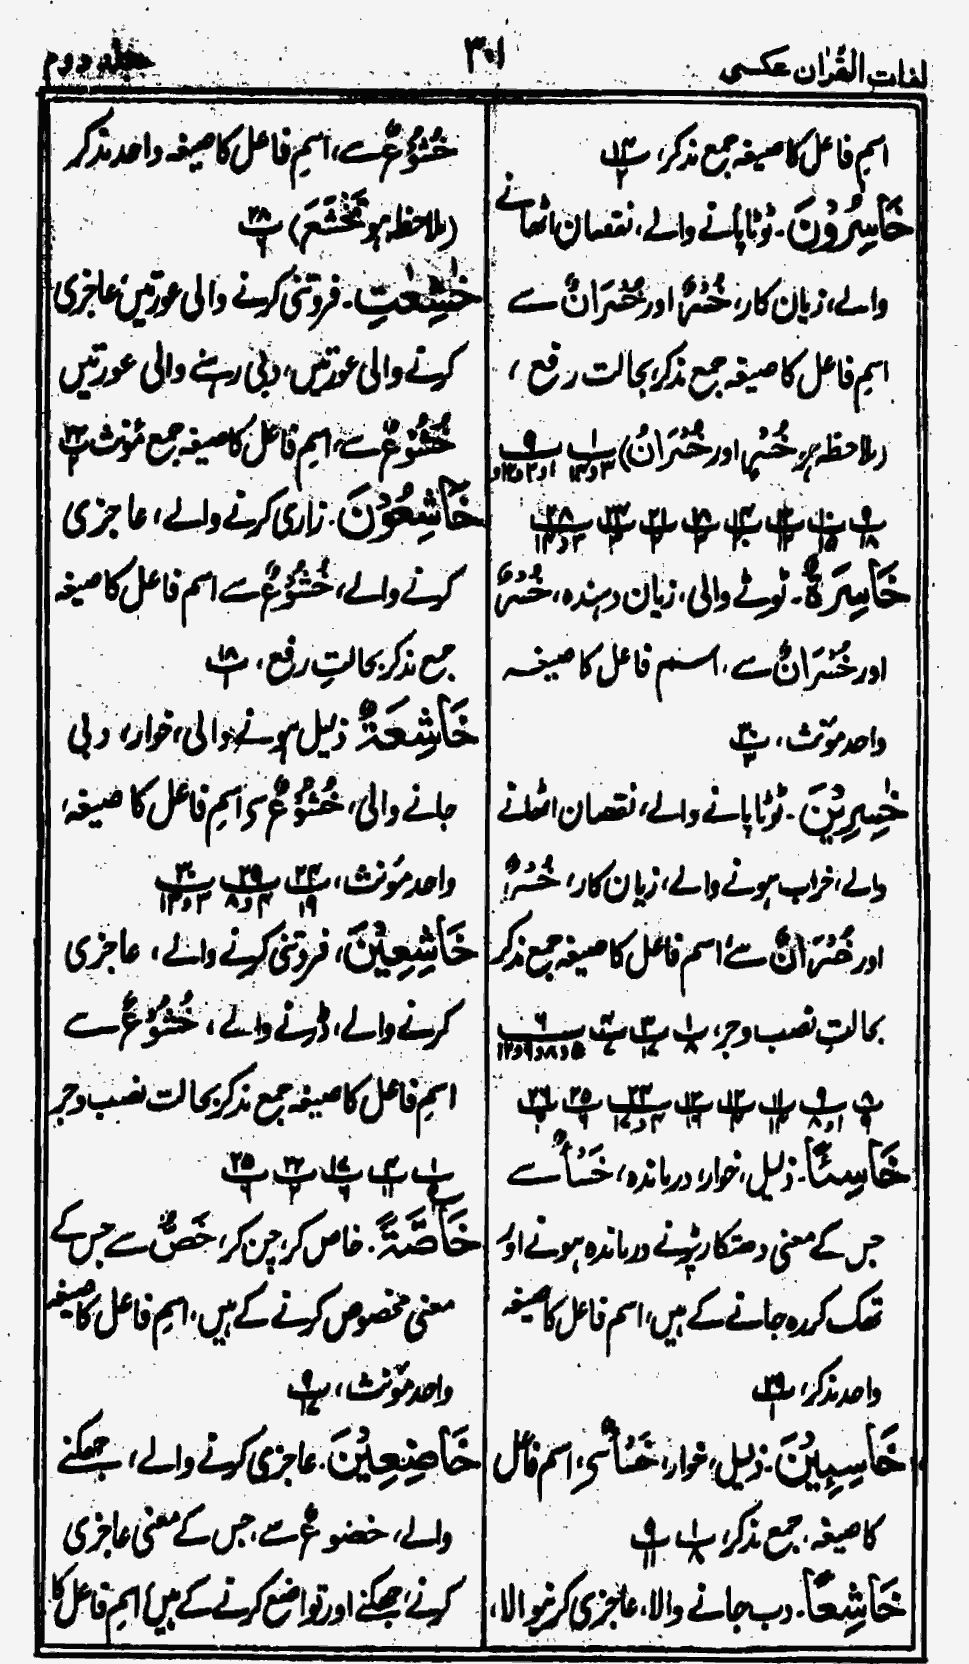 لغات القرآن عکسی
۳۰۱
جلد دوم
اسمِ فاعل کا صیغہ جمع مذکر، پ ۱۴/۲
خَاسِرُوْنَ۔ ٹوٹا پانے والے، نقصان اٹھانے
والے، زیان کار، خُسْرٌ اور خُسْرَانٌ سے
اسمِ فاعل کا صیغہ جمع مذکر بحالت رفع،
(ملاحظہ ہو خُسْرٌ اور خُسْرَانٌ) پ ۱/۳و۱۴ پ ۹/۱و۲و۱۲و
پ ۹/۱۸ پ ۱۰/۱۵ پ ۱۲/۱۲ پ ۱۴/۲۰ پ ۱۸/۲ پ ۲۱/۲ پ ۲۴/۳ پ ۲۸/۲و۱۴
خَاسِرَۃٌ۔ ٹوٹے والی، زیان دہندہ، خُسْرٌ
اور خُسْرَانٌ سے، اسم فاعل کا صیغہ
واحد مؤنث، پ ۳۰/۳
خٰسِرِیْنَ۔ ٹوٹا پانے والے، نقصان اٹھانے
والے، خراب ہونے والے، زیان کار، خُسْرٌ
اور خُسْرَانٌ سے، اسم فاعل کا صیغہ جمع مذکر
بحالتِ نصب و جر، پ ۱/۸ پ ۳/۱۷ پ ۴/۷ پ ۶/۵و۸و۹و۱۲
پ ۸/۹ پ ۹/۱و۸ پ ۱۱/۱۴ پ ۱۲/۴ پ ۱۳/۱۹ پ ۲۴/۴و۱۷ پ ۲۵/۹ پ ۲۶/۲
خَاسِئًا۔ ذلیل، خوار، درماندہ، خَسَأٌ سے
جس کے معنی دھتکار پڑنے درماندہ ہونے اور
تھک کر رہ جانے کے ہیں، اسم فاعل کا صیغہ
واحد مذکر، پ ۲۹/۱
خَاسِئِیْنَ۔ ذلیل، خوار، خَسَأٌ سے، اسم فاعل
کا صیغہ، جمع مذکر، پ ۱/۸ پ ۹/۱۱
خَاشِعًا۔ دب جانے والا، عاجزی کرنیوالا،
خُشُوْعٌ سے، اسمِ فاعل کا صیغہ واحد مذکر
(ملاحظہ ہو تَخْشَعَ) پ ۲۸/۶
خٰشِعٰتِ۔ فروتنی کرنے والی عورتیں، عاجزی
کرنے والی عورتیں، دبی رہنے والی عورتیں
خُشُوْعٌ سے، اسمِ فاعل کا صیغہ جمع مؤنث پ ۲۲/۲
خَاشِعُوْنَ۔ زاری کرنے والے، عاجزی
کرنے والے، خُشُوْعٌ سے اسم فاعل کا صیغہ
جمع مذکر بحالتِ رفع، پ ۱۸/۱
خَاشِعَۃٌ ذلیل ہونے والی، خوار، دبی
جانے والی، خُشُوْعٌ سے اسمِ فاعل کا صیغہ،
واحد مؤنث، پ ۲۴/۱۹ پ ۲۹/۴و۸ پ ۳۰/۳و۱۳
خَاشِعِیْنَ، فروتنی کرنے والے، عاجزی
کرنے والے، ڈرنے والے، خُشُوْعٌ سے
اسمِ فاعل کا صیغہ جمع مذکر بحالت نصب و جر
پ ۱/۵ پ ۴/۱۱ پ ۱۷/۶ پ ۲۲/۲ پ ۲۵/۶
خَاصَّۃً۔ خاص کر، چن کر، خَصٌّ سے جس کے
معنی مخصوص کرنے کے ہیں، اسمِ فاعل کا صیغہ
واحد مؤنث، پ ۹/۱۷
خَاضِعِیْنَ۔ عاجزی کرنے والے، جھکنے
والے، خضوعٌ سے، جس کے معنی عاجزی
کرنے، جھکنے اور تواضع کرنے کے ہیں اسمِ فاعل کا